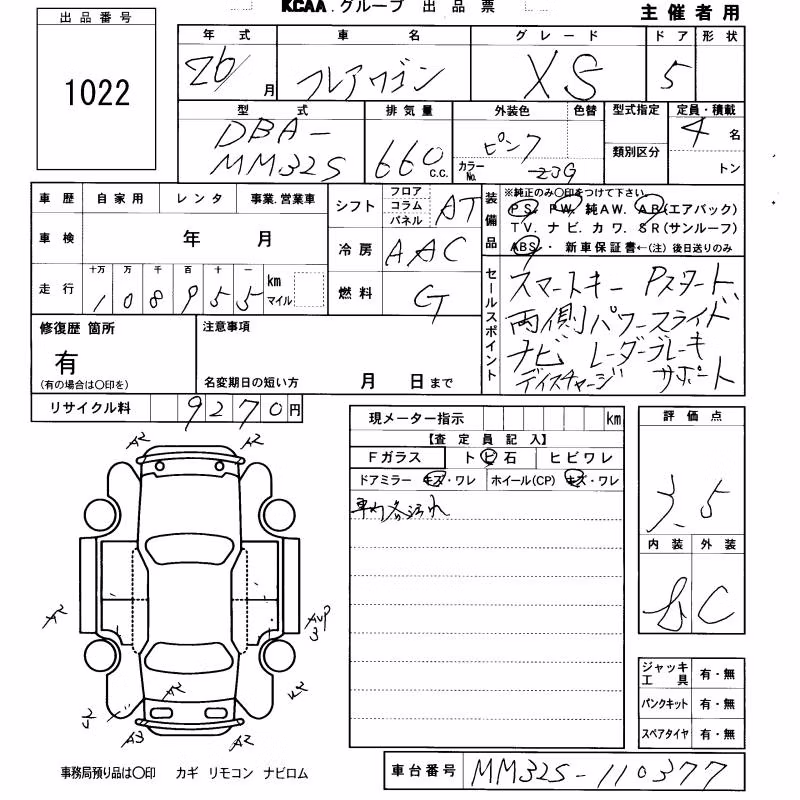 KCAA.グループ 出品票
主催者用
出品番号
1022
年式 車名 グレード ドア 形状
26/ 月 フレアワゴン XS 5
型式 排気量 外装色 色替 型式指定 定員・積載
DBA-
MM32S 660 C.C. ピンク カラーNo. Z3G 類別区分 4 名
トン
車歴 自家用 レンタ 事業.営業車
車検 年 月
走行 十万 万 千 百 十 一 km マイル
108955
シフト フロア コラム パネル AT
冷房 AAC
燃料 G
装備品
※純正のみ〇印をつけて下さい。
PS. PW. 純AW. AB(エアバック)
TV. ナビ. カワ. SR(サンルーフ)
ABS・ 新車保証書←(注) 後日送りのみ
セールスポイント
スマートキー Pスタート、
両側パワースライド
ナビ レーダーブレーキ
ディスチャージ サポート
修復歴 箇所
有
(有の場合は〇印を)
注意事項
名変期日の短い方 月 日まで
リサイクル料 9270円
現メーター指示 km
【査定員記入】
Fガラス トビ石 ヒビワレ
ドアミラー キズ・ワレ ホイール(CP) キズ・ワレ
車内各汚れ
評価点
3.5
内装 外装
C
ジャッキ 工具 有・無
パンクキット 有・無
スペアタイヤ 有・無
A2 A2
A2
3
A2
A3 A2
事務局預り品は〇印 カギ リモコン ナビロム
車台番号 MM32S-110377